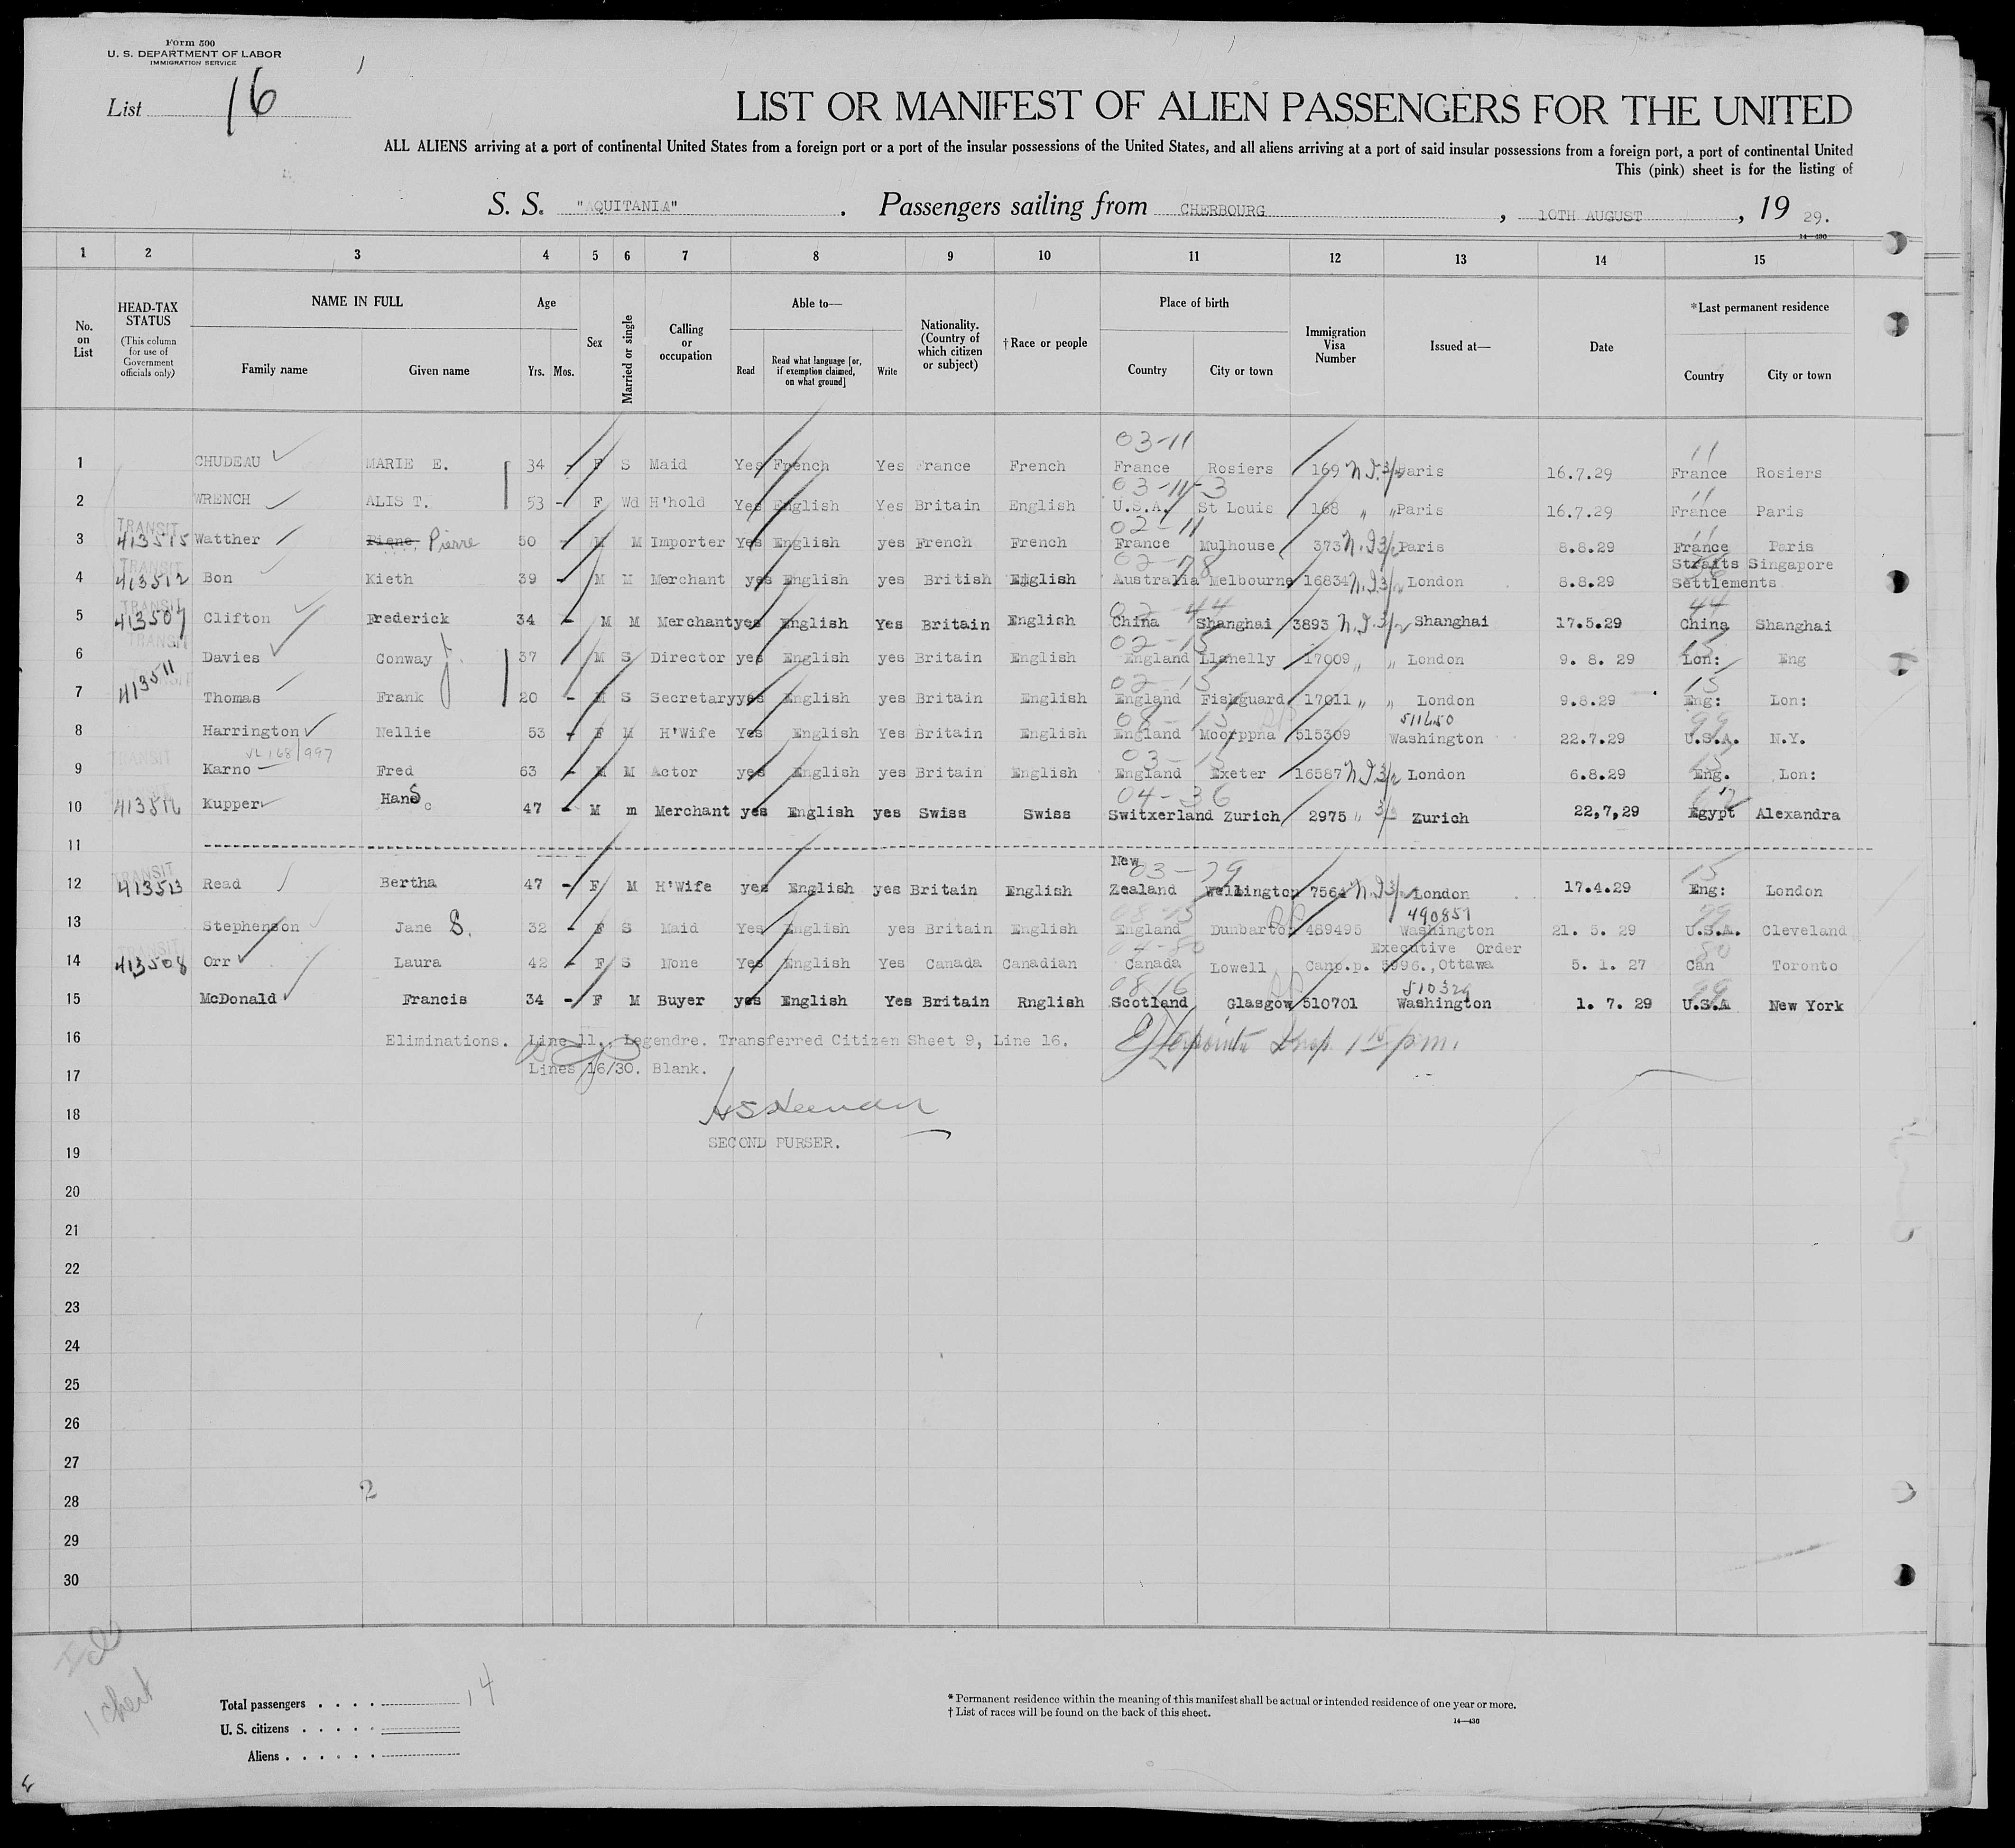 Form 500
U. S. DEPARTMENT OF LABOR
IMMIGRATION SERVICE
List 16
LIST OR MANIFEST OF ALIEN PASSENGERS FOR THE UNITED
ALL ALIENS arriving at a port of continental United States from a foreign port or a port of the insular possessions of the United States, and all aliens arriving at a port of said insular possessions from a foreign port, a port of continental United
This (pink) sheet is for the listing of
S. S. "AQUITANIA". Passengers sailing from CHERBOURG, 10TH AUGUST, 19 29.
14—430
1 2 3 4 5 6 7 8 9 10 11 12 13 14 15
No. on List
HEAD-TAX STATUS (This column for use of Government officials only)
NAME IN FULL Family name Given name
Age Yrs. Mos.
Sex
Married or single
Calling or occupation
Able to— Read Read what language [or, if exemption claimed, on what ground] Write
Nationality. (Country of which citizen or subject)
†Race or people
Place of birth Country City or town
Immigration Visa Number
Issued at—
Date
*Last permanent residence Country City or town
03-11 11
1 CHUDEAU MARIE E. 34 - F S Maid Yes French Yes France French France Rosiers 169 N.I. 3/2 Paris 16.7.29 France Rosiers
03-11-3 11
2 WRENCH ALIS T. 53 - F Wd H'hold Yes English Yes Britain English U.S.A. St Louis 168 " " Paris 16.7.29 France Paris
TRANSIT 02-11 11
3 413515 Watther Piene, Pierre 50 - M M Importer Yes English yes French French France Mulhouse 373 N.I 3/2 Paris 8.8.29 France Paris
TRANSIT 02-78 Straits Singapore
4 413512 Bon Kieth 39 - M M Merchant yes English yes British English Australia Melbourne 16834 N.I. 3/2 London 8.8.29 Settlements
TRANSIT 02-44 44
5 413507 Clifton Frederick 34 - M M Merchant yes English Yes Britain English China Shanghai 3893 N.I. 3/2 Shanghai 17.5.29 China Shanghai
TRANSIT 02-15 15
6 Davies Conway J. 37 M S Director yes English yes Britain English England Llanelly 17009 " " London 9. 8. 29 Lon: Eng
413511 02-15 15
7 Thomas Frank 20 - M S Secretary yes English yes Britain English England Fishguard 17011 " " London 9.8.29 Eng: Lon:
08-15 511450 99
8 Harrington Nellie 53 - F M H'Wife Yes English Yes Britain English England Moorppna 515309 Washington 22.7.29 U.S.A. N.Y.
TRANSIT VL 168/997 03-15 15
9 Karno Fred 63 - M M Actor yes English yes Britain English England Exeter 16587 N.I 3/2 London 6.8.29 Eng. Lon:
04-36
10 Kupper Hans 47 - M m Merchant yes English yes Swiss Swiss Switxerland Zurich 2975 " 3/2 Zurich 22,7,29 Egypt Alexandra
11
TRANSIT New 03-79 15
12 413513 Read Bertha 47 - F M H'Wife yes English yes Britain English Zealand Wellington 7564 N.I 3/2 London 17.4.29 Eng: London
08-15 490851 99
13 Stephenson Jane S. 32 - F S Maid Yes English yes Britain English England Dunbarto. 489495 Washington 21. 5. 29 U.S.A. Cleveland
TRANSIT 04-80 Executive Order 80
14 413508 Orr Laura 42 - F S None Yes English Yes Canada Canadian Canada Lowell Canp.p. 5996.,Ottawa 5. 1. 27 Can Toronto
08 16 99
15 McDonald Francis 34 - F M Buyer yes English Yes Britain Rnglish Scotland Glasgow 510701 Washington 1. 7. 29 U.S.A New York
16 Eliminations. Line 11., Legendre. Transferred Citizen Sheet 9, Line 16.
17 Lines 16/30. Blank.
18
19 SECOND PURSER.
20
21
22
23
24
25
26
27
28 2
29
30
Total passengers . . . . 14
U. S. citizens . . . . .
Aliens . . . . . .
* Permanent residence within the meaning of this manifest shall be actual or intended residence of one year or more.
† List of races will be found on the back of this sheet.
14—430